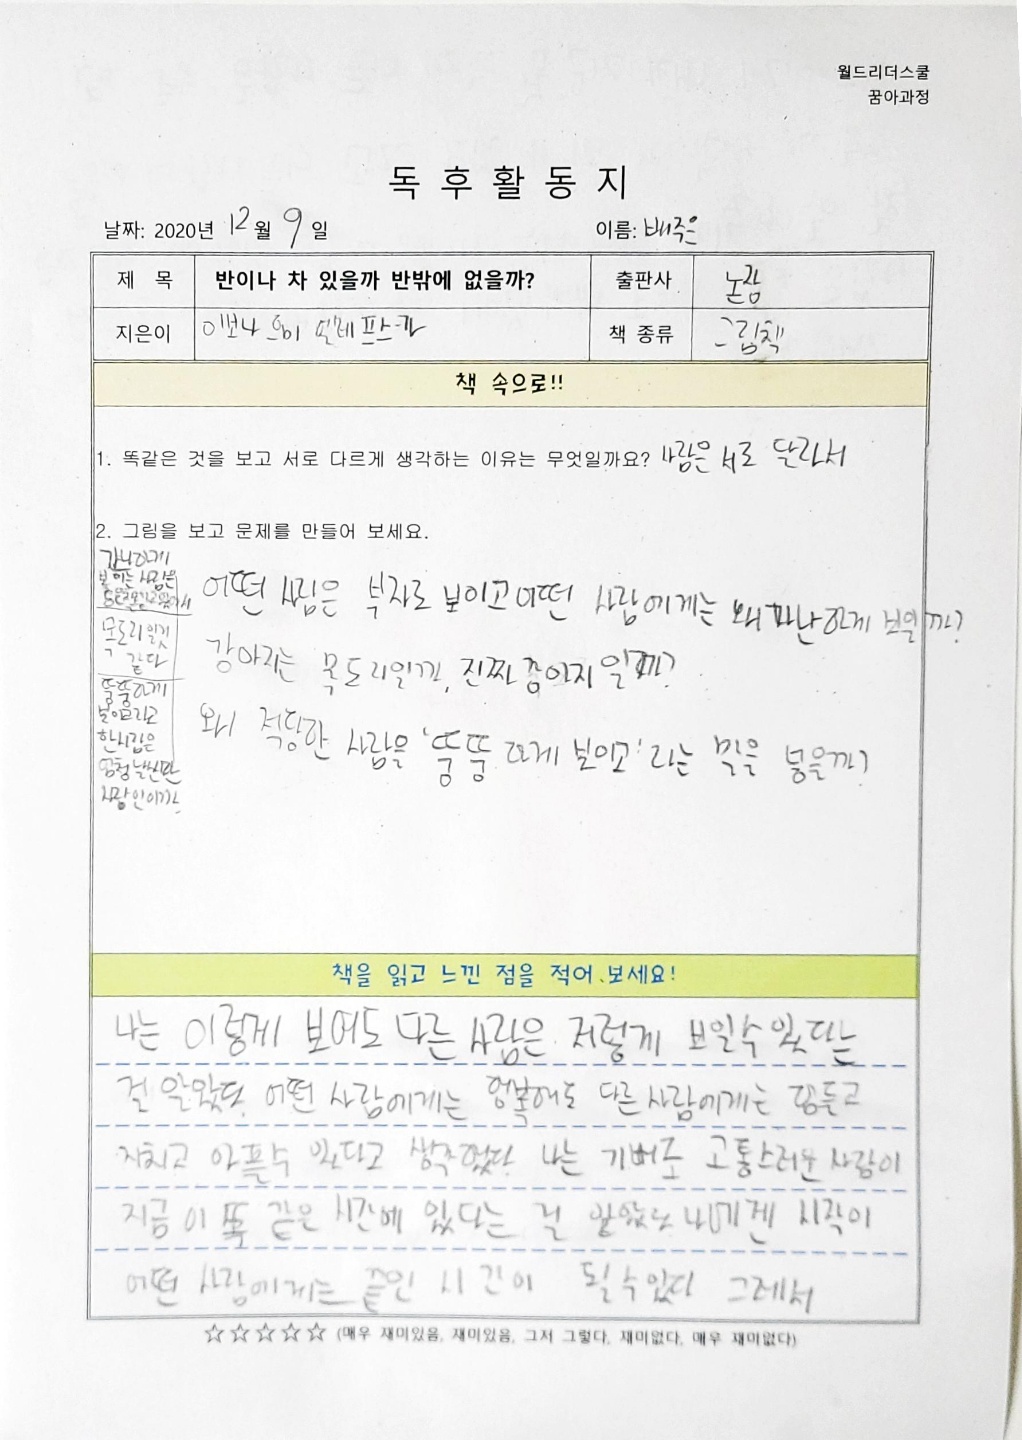 월드리더스쿨
꿈아과정
독 후 활 동 지
날짜: 2020년 12월 9일 이름: 배주은
제 목 반이나 차 있을까 반밖에 없을까? 출판사 논장
지은이 이보나 흐미엘레프스카 책 종류 그림책
책 속으로!!
1. 똑같은 것을 보고 서로 다르게 생각하는 이유는 무엇일까요? 사람은 서로 달라서
2. 그림을 보고 문제를 만들어 보세요.
어떤 사림은 부자로 보이고 어떤 사람에게는 왜 파난하게 보일까?
강아지는 목도리일까, 진짜 종이지 일까?
왜 적당한 사람을 '뚱뚱 하게 보이고' 라는 말을 넣을까?
보이는 사람은
목도리일것
같다
뚱뚱하게
보이그리고
한사람은
엄청 날씬한
사람인이까.
책을 읽고 느낀 점을 적어 보세요!
나는 이렇게 보여도 다른 사람은 저렇게 보일수 있다는
걸 알았다. 어떤 사람에게는 행복해도 다른 사람에게는 힘들고
지치고 아플수 있다고 생각했다. 나는 기뻐도 고통스러운 사람이
지금 이 똑 같은 시간에 있다는 걸 알았다 나에겐 시작이
어떤 사람에게는 끝인 시간이 될수있다 그레서
☆☆☆☆☆ (매우 재미있음, 재미있음, 그저 그렇다, 재미없다, 매우 재미없다)